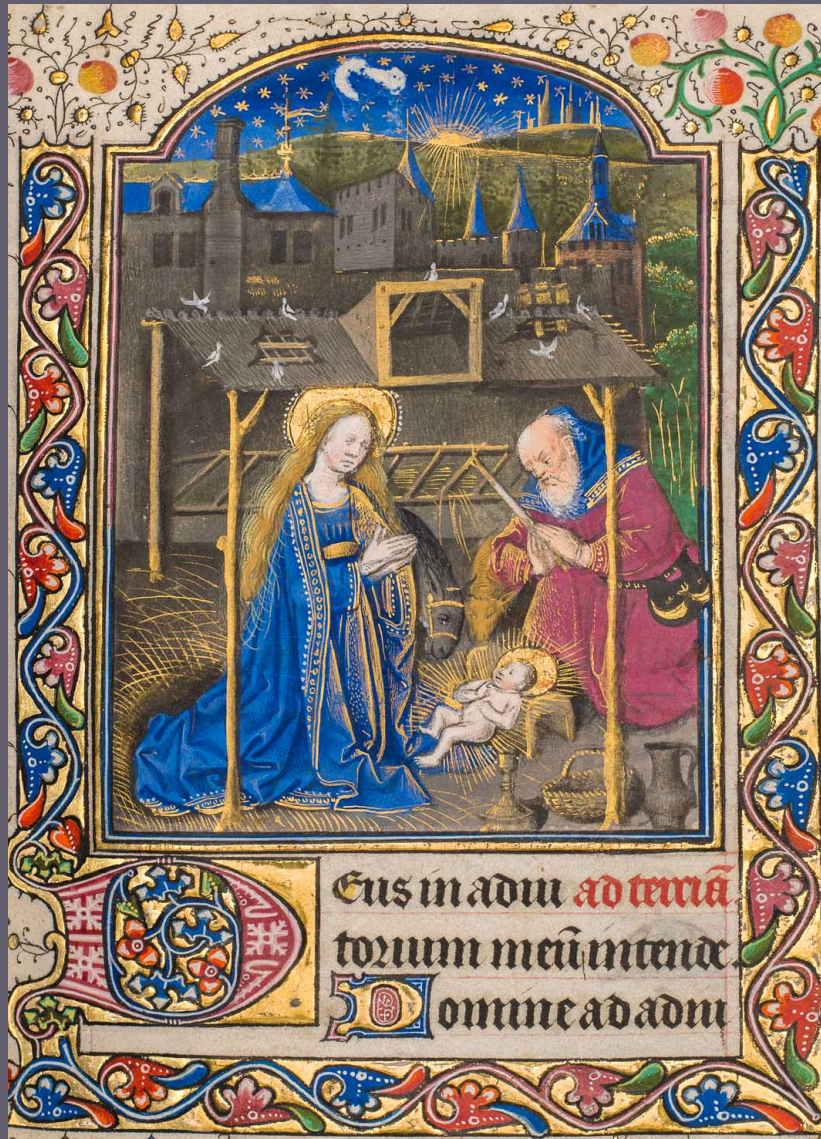 Deus in adiu ad terciā
torium meū intende.
Domine ad adiu